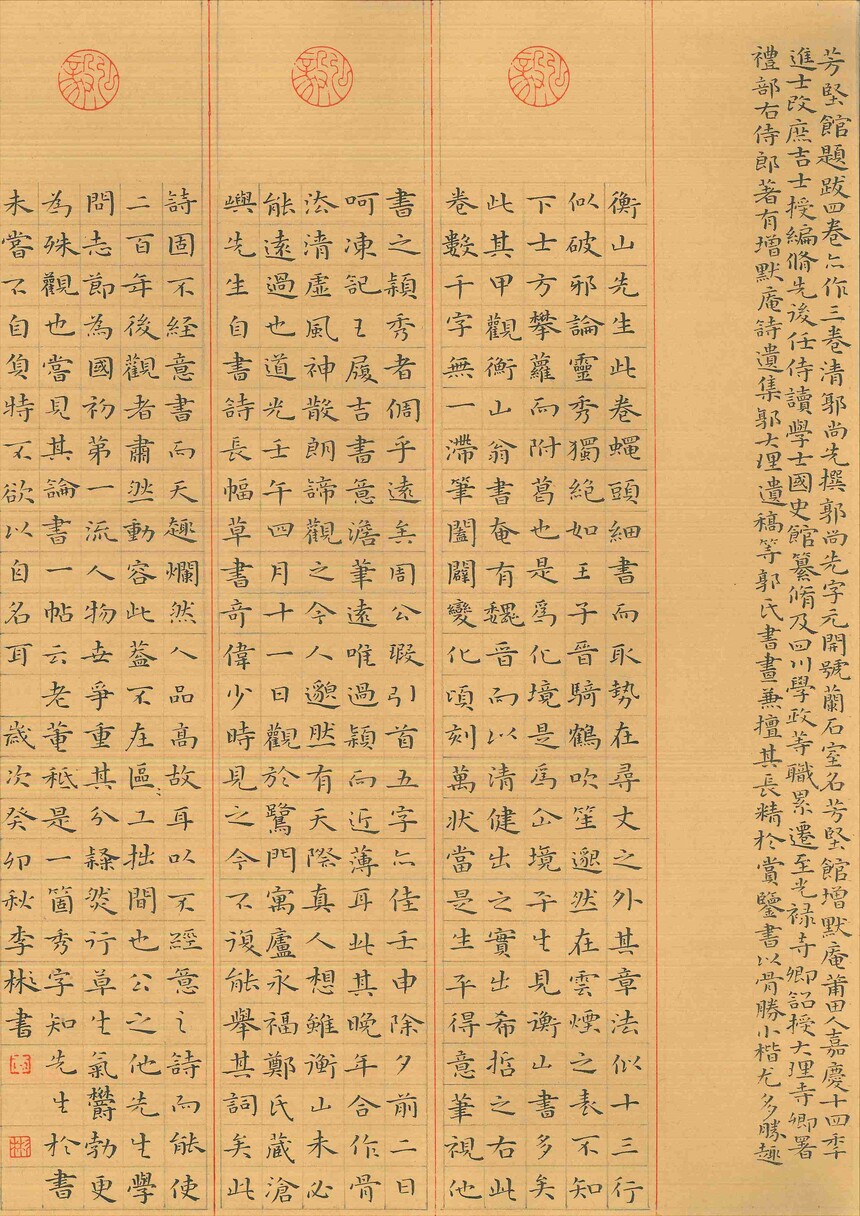 芳堅館題跋四卷亦作三卷清郭尚先撰郭尚先字元開號蘭石室名芳堅館增默庵莆田人嘉慶十四年
進士改庶吉士授編脩先後任侍讀學士國史館纂脩及四川學政等職累遷至光祿寺卿詔授大理寺卿署
禮部右侍郎著有增默庵詩遺集郭大理遺稿等郭氏書畫兼擅其長精於賞鑒書以骨勝小楷尤多勝趣
衡山先生此卷蠅頭細書而取勢在尋丈之外其章法似十三行
似破邪論靈秀獨絕如王子晉騎鶴吹笙邈然在雲煙之表不知
下士方攀蘿而附葛也是為化境是為仙境予生見衡山書多矣
此其甲觀衡山翁書奄有魏晉而以清健出之實出希哲之右此
卷數千字無一滯筆闔闢變化頃刻萬狀當是生平得意筆視他
書之穎秀者倜乎遠矣周公瑕引首五字亦佳壬申除夕前二日
呵凍記王履吉書意澹筆遠唯過穎而近薄耳此其晚年合作骨
法清虛風神散朗諦觀之令人邈然有天際真人想雖衡山未必
能遠過也道光壬午四月十一日觀於鷺門寓廬永福鄭氏藏滄
嶼先生自書詩長幅草書奇偉少時見之今不復能舉其詞矣此
詩固不經意書而天趣爛然人品高故耳以不經意之詩而能使
二百年後觀者肅然動容此蓋不在區區工拙間也公之他先生學
問志節為國初第一流人物世爭重其分隸然行草生氣鬱勃更
為殊觀也嘗見其論書一帖云老董秖是一箇秀字知先生於書
未嘗不自負特不欲以自名耳 歲次癸卯秋李彬書